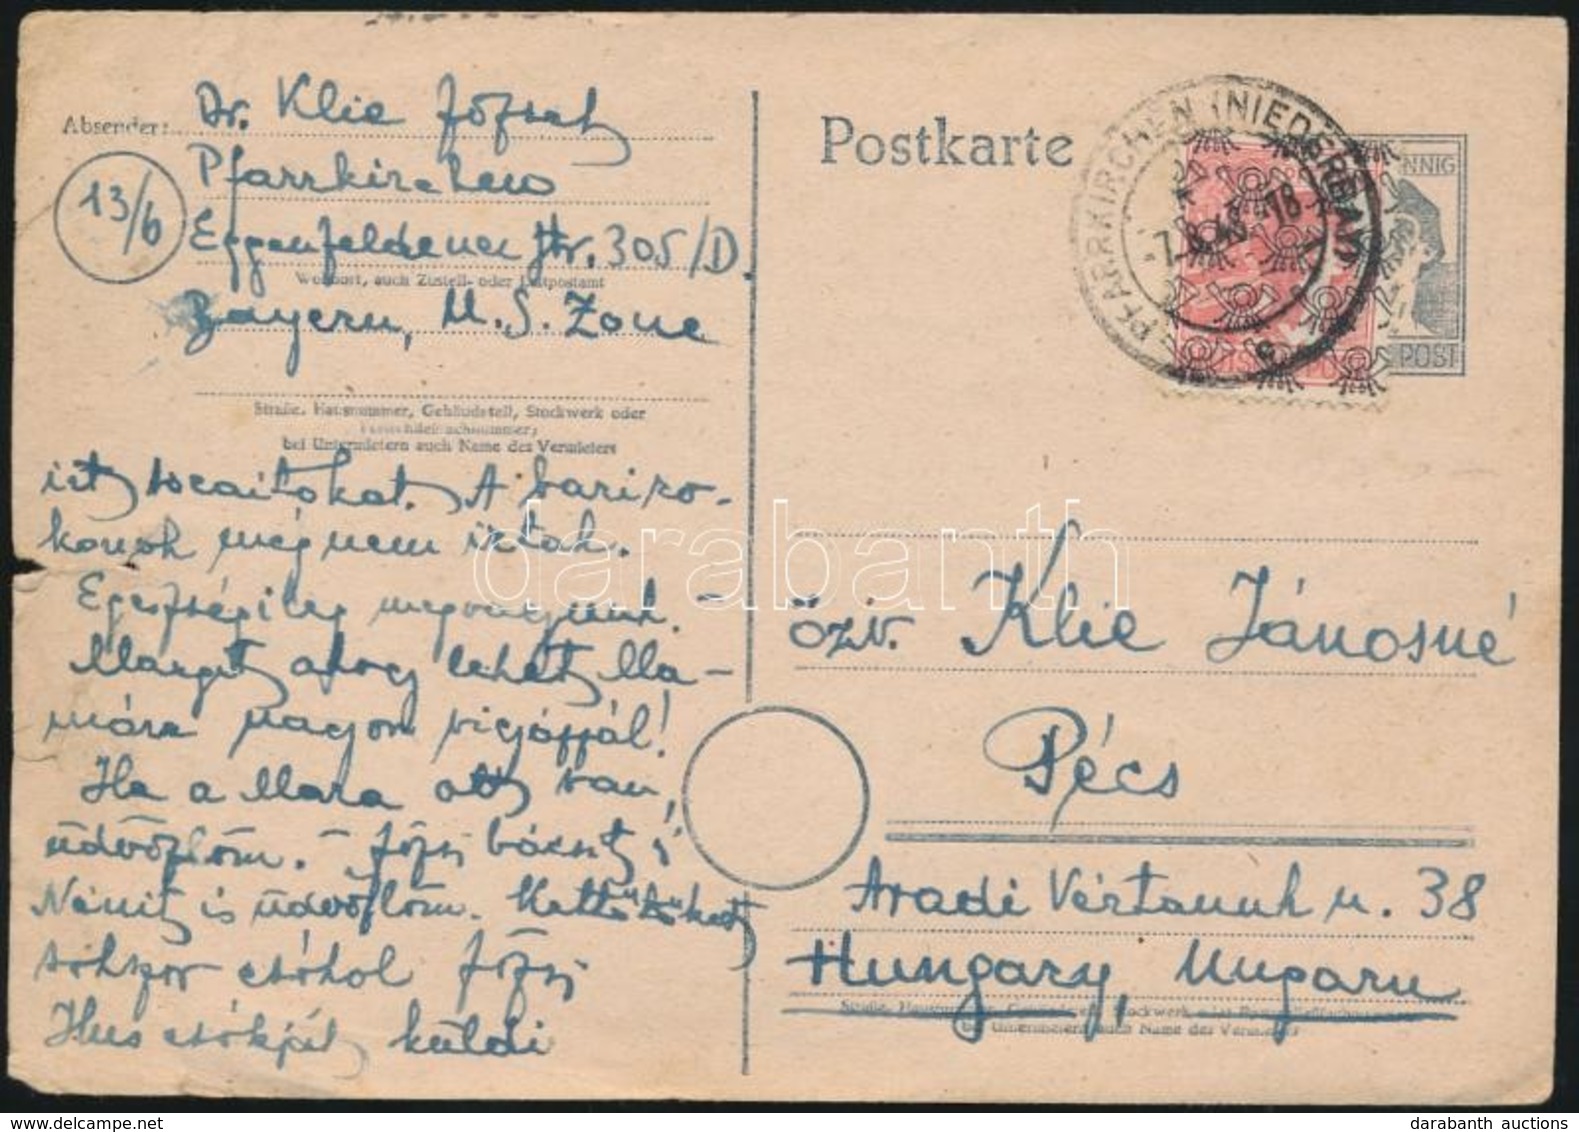 Absender: Dr. Klie József
Pfarrkirchen
13/b
Eggenfeldener Str. 305/D.
Wohnort, auch Zustell- oder Leitpostamt
Bayern, U.S. Zone
Straße, Hausnummer, Gebäudeteil, Stockwerk oder
bei Untermietern auch Name des Vermieters
A barizo-
konok még nem írtak.
Egészségileg megvagyunk. –
Margit ahogy lehet Ma-
mára nagyon vigyáz
Ha a Mara ott van,
üdvözlöm. – Józsi bácsit,
Nánit is üdvözlöm. Kettőtöket
sokszor csókol Józsi
Hus csókját küldi
Postkarte
PFARRKIRCHEN (NIEDERBAY)
-7.8.48.-18
PFENNIG
POST
özv. Klie Jánosné
Pécs
Aradi Vértanuk u. 38
Hungary, Ungarn
Straße, Hausnummer, Gebäudeteil, Stockwerk oder Postschließfachnummer;
bei Untermietern auch Name des Vermieters
darabanth
darabanth auctions